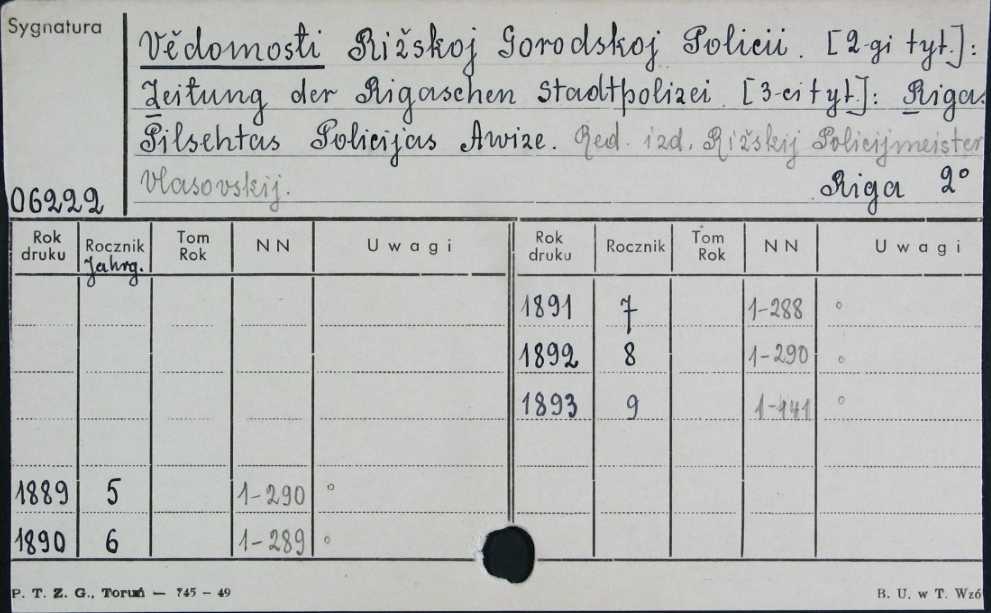 Sygnatura
Vědomosti Rižskoj Gorodskoj Policii. [2-gi tyt.]:
Zeitung der Rigaschen Stadtpolizei. [3-ci tyt.]: Rigas
Pilsehtas Policijas Awize. Red. izd. Rižskij Policijmeister
Vlasovskij. Riga 2°
06222
Rok druku Rocznik Jahrg. Tom Rok NN Uwagi Rok druku Rocznik Tom Rok NN Uwagi
1891 7 1-288 °
1892 8 1-290 °
1893 9 1-141 °
1889 5 1-290 °
1890 6 1-289 °
P. T. Z. G., Toruń — 745 — 49 B. U. w T. Wz6